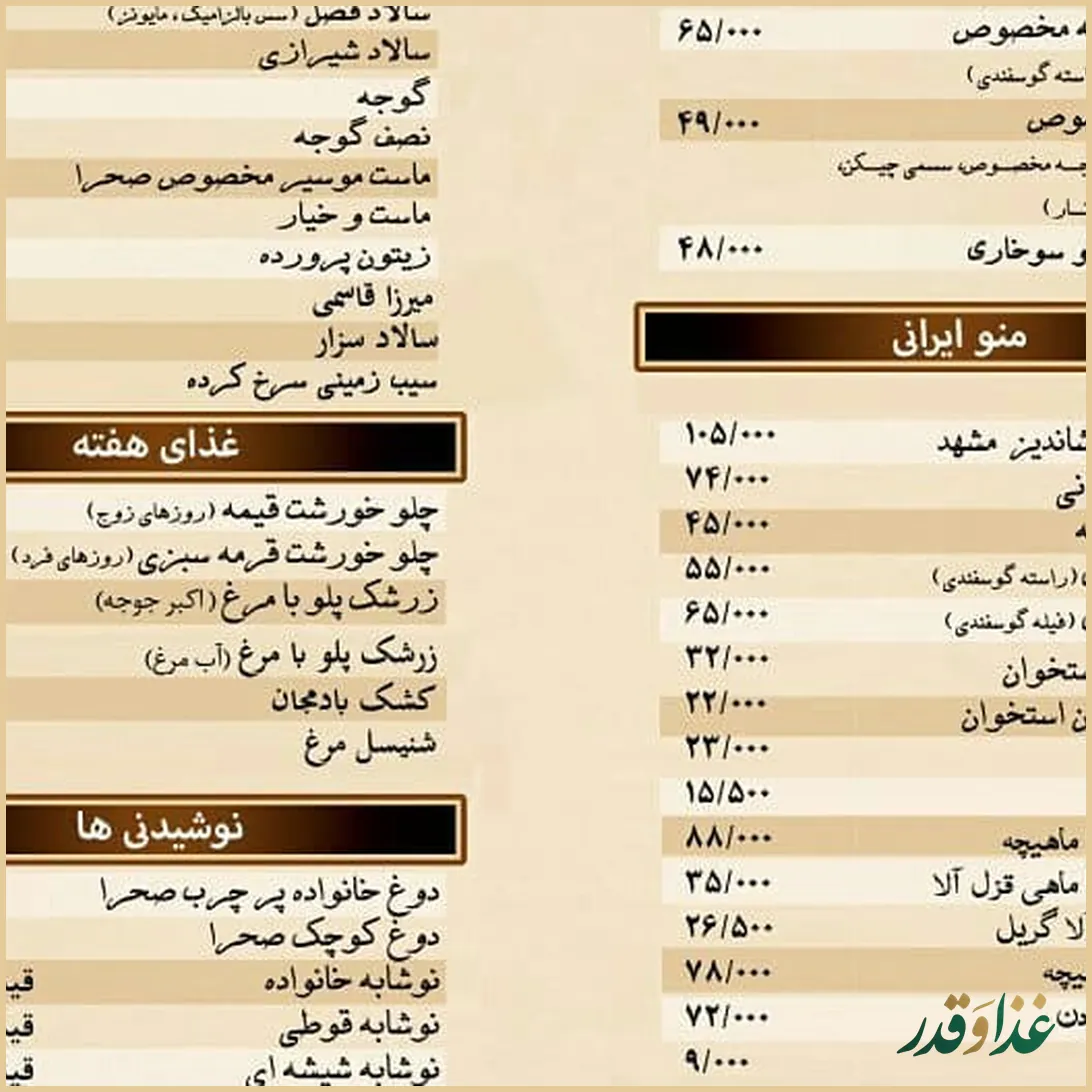 مخصوص ۶۵/۰۰۰
گوسفندی)
۴۹/۰۰۰
مخصوص، سسمی چیکن،
و سوخاری ۴۸/۰۰۰
منو ایرانی
مشهد ۱۰۵/۰۰۰
۷۴/۰۰۰
۴۵/۰۰۰
(راسته گوسفندی) ۵۵/۰۰۰
(فیله گوسفندی) ۶۵/۰۰۰
۳۲/۰۰۰
استخوان ۲۲/۰۰۰
۲۳/۰۰۰
۱۵/۵۰۰
ماهیچه ۸۸/۰۰۰
ماهی قزل آلا ۳۵/۰۰۰
گریل ۲۶/۵۰۰
۷۸/۰۰۰
۷۲/۰۰۰
۹/۰۰۰
سالاد فصل (سس بالزامیک، مایونز)
سالاد شیرازی
گوجه
نصف گوجه
ماست موسیر مخصوص صحرا
ماست و خیار
زیتون پرورده
میرزا قاسمی
سالاد سزار
سیب زمینی سرخ کرده
غذای هفته
چلو خورشت قیمه (روزهای زوج)
چلو خورشت قرمه سبزی (روزهای فرد)
زرشک پلو با مرغ (اکبر جوجه)
زرشک پلو با مرغ (آب مرغ)
کشک بادمجان
شنیسل مرغ
نوشیدنی ها
دوغ خانواده پر چرب صحرا
دوغ کوچک صحرا
نوشابه خانواده
نوشابه قوطی
نوشابه شیشه ای
غذاوقدر